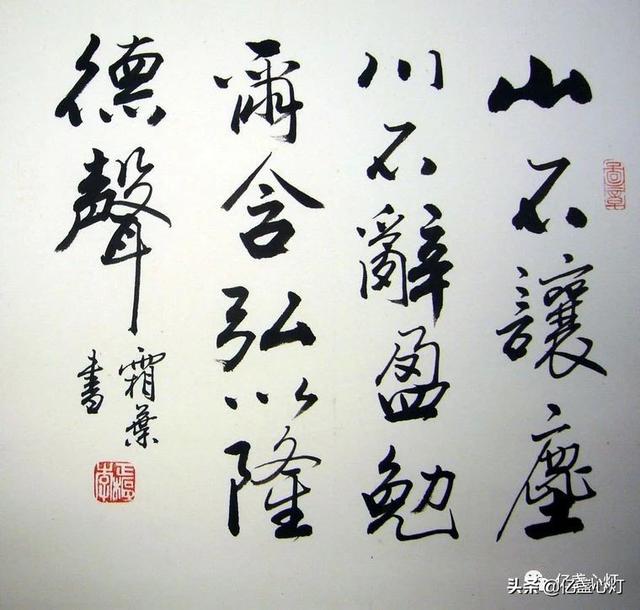 山不讓塵
川不辭盈勉
爾含弘以隆
德聲
霜葉
書
亿盏心灯
头条@亿盏心灯